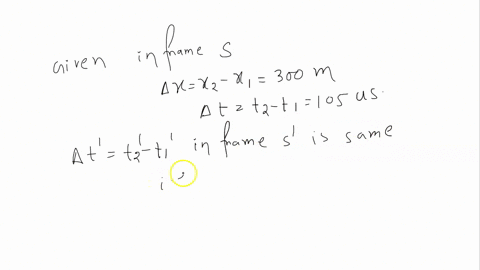 given in frame S
Δx = x₂ - x₁ = 300 m
Δt = t₂ - t₁ = 105 us.
Δt' = t₂' - t₁' in frame s' is same
i